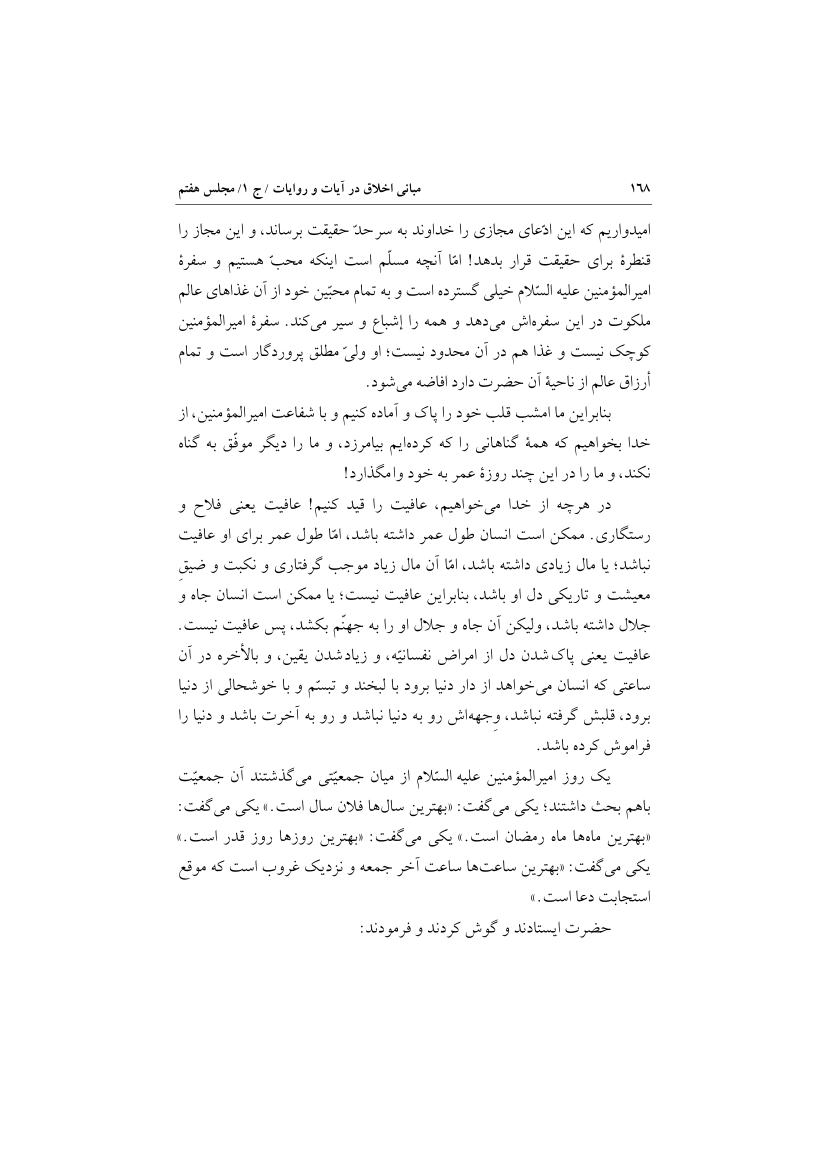 ۱۶۸ مبانی اخلاق در آیات و روایات / ج ۱/ مجلس هفتم
امیدواریم که این ادّعای مجازی را خداوند به سرحدّ حقیقت برساند، و این مجاز را
قنطرهٔ برای حقیقت قرار بدهد! امّا آنچه مسلّم است اینکه محبّ هستیم و سفرهٔ
امیرالمؤمنین علیه السّلام خیلی گسترده است و به تمام محبّین خود از آن غذاهای عالم
ملکوت در این سفره‌اش می‌دهد و همه را إشباع و سیر می‌کند. سفرهٔ امیرالمؤمنین
کوچک نیست و غذا هم در آن محدود نیست؛ او ولیّ مطلق پروردگار است و تمام
أرزاق عالم از ناحیهٔ آن حضرت دارد افاضه می‌شود.
بنابراین ما امشب قلب خود را پاک و آماده کنیم و با شفاعت امیرالمؤمنین، از
خدا بخواهیم که همهٔ گناهانی را که کرده‌ایم بیامرزد، و ما را دیگر موفّق به گناه
نکند، و ما را در این چند روزهٔ عمر به خود وامگذارد!
در هرچه از خدا می‌خواهیم، عافیت را قید کنیم! عافیت یعنی فلاح و
رستگاری. ممکن است انسان طول عمر داشته باشد، امّا طول عمر برای او عافیت
نباشد؛ یا مال زیادی داشته باشد، امّا آن مال زیاد موجب گرفتاری و نکبت و ضیقِ
معیشت و تاریکی دل او باشد، بنابراین عافیت نیست؛ یا ممکن است انسان جاه و
جلال داشته باشد، ولیکن آن جاه و جلال او را به جهنّم بکشد، پس عافیت نیست.
عافیت یعنی پاک‌شدن دل از امراض نفسانیّه، و زیادشدن یقین، و بالأخره در آن
ساعتی که انسان می‌خواهد از دار دنیا برود با لبخند و تبسّم و با خوشحالی از دنیا
برود، قلبش گرفته نباشد، وِجهه‌اش رو به دنیا نباشد و رو به آخرت باشد و دنیا را
فراموش کرده باشد.
یک روز امیرالمؤمنین علیه السّلام از میان جمعیّتی می‌گذشتند آن جمعیّت
باهم بحث داشتند؛ یکی می‌گفت: «بهترین سال‌ها فلان سال است.» یکی می‌گفت:
«بهترین ماه‌ها ماه رمضان است.» یکی می‌گفت: «بهترین روزها روز قدر است.»
یکی می‌گفت: «بهترین ساعت‌ها ساعت آخر جمعه و نزدیک غروب است که موقع
استجابت دعا است.»
حضرت ایستادند و گوش کردند و فرمودند: